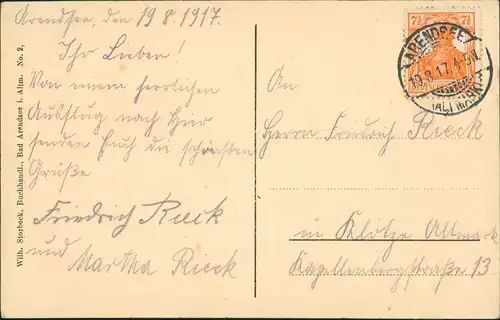 Arendsee, den 19 8. 1917.
Ihr Lieben!
Von einem herrlichen
Ausflug nach hier
senden Euch die schönsten
Grüße
Friedrich Rieck
und
Martha Rieck
Wilh. Sparbeck, Buchhandl., Bad Arendsee i. Altm. No. 2,
7½ 7½
ARENDSEE
19.8.17.4-5N.
(ALTMARK)
An
Herrn Friedrich Rieck
in Klötze Altmark
Kapellenbergstraße 13.